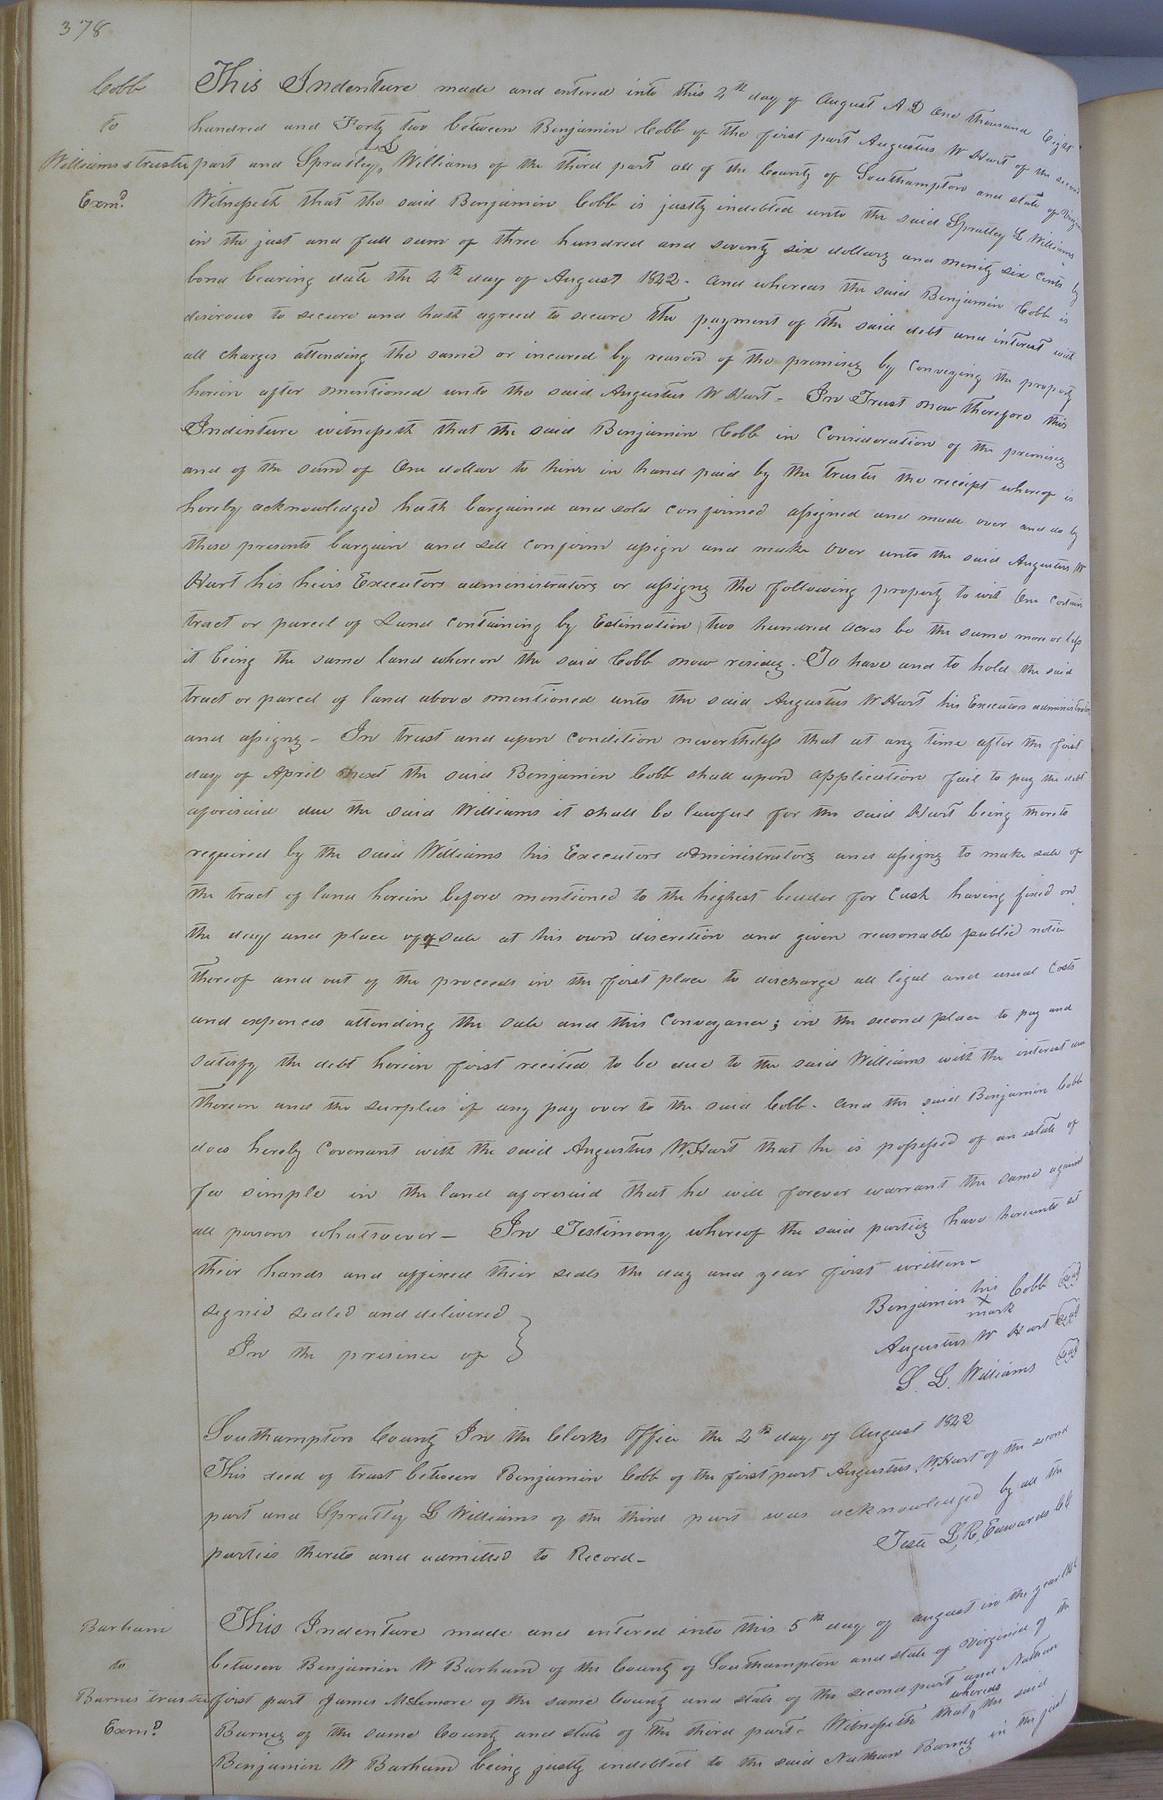 378
Cobb
to
Williams & trustee
Exmd
This Indenture made and entered into this 2th day of August A D One thousand Eight
hundred and Forty two between Benjamin Cobb of the first part Augustus W Hart of the second
part and Spratley L Williams of the third part all of the County of Southampton and state of Virginia
Witnesseth that the said Benjamin Cobb is justly indebted unto the said Spratley L Williams
in the just and full sum of three hundred and seventy six dollars and ninety six cents by
bond bearing date the 2th day of August 1842. And whereas the said Benjamin Cobb is
desirous to secure and hath agreed to secure the payment of the said debt and interest with
all charges attending the same or incured by reason of the premises by conveying the property
herein after mentioned unto the said Augustus W Hart - In Trust now therefore this
Indenture witnesseth that the said Benjamin Cobb in Consideration of the premises
and of the sum of One dollar to him in hand paid by the trustee the receipt whereof is
hereby acknowledged hath bargained and sold confirmed assigned and made over and do by
these presents bargain and sell confirm assign and make over unto the said Augustus W
Hart his heirs Executors administrators or assigns the following property to wit One certain
tract or parcel of Land containing by Estimation two hundred acres be the same more or less
it being the same land whereon the said Cobb now resides. To have and to hold the said
tract or parcel of land above mentioned unto the said Augustus W Hart his Executors administrators
and assigns - In trust and upon condition nevertheless that at any time after the first
day of April next the said Benjamin Cobb shall upon application fail to pay the debt
aforesaid due the said Williams it shall be lawful for the said Hart being thereto
required by the said Williams his Executors administrators and assigns to make sale of
the tract of land herein before mentioned to the highest bidder for Cash having fixed on
the day and place of sale at his own discretion and given reasonable public notice
thereof and out of the proceeds in the first place to discharge all legal and usual Costs
and expences attending the sale and this Conveyance; in the second place to pay and
satisfy the debt herein first recited to be due to the said Williams with the interest due
thereon and the surplus if any pay over to the said Cobb. And the said Benjamin Cobb
does hereby Covenant with the said Augustus W. Hart that he is possessed of an estate of
fee simple in the land aforesaid that he will forever warrant the same against
all persons whatsoever - In Testimony whereof the said parties have hereunto set
their hands and affixed their seals the day and year first written -
signed sealed and delivered
In the presence of
Benjamin his X mark Cobb Seal
Augustus W Hart Seal
S. L. Williams Seal
Southampton County In the Clerks Office the 2th day of August 1842
This deed of trust between Benjamin Cobb of the first part Augustus W. Hart of the second
part and Spratley L Williams of the third part was acknowledged by all the
parties thereto and admitted to Record -
Teste L. R. Edwards CC
Barham
to
Barnes trustee
Exmd
This Indenture made and entered into this 5th day of august in the year
between Benjamin W Barham of the County of Southampton and state of Virginia of the
first part James McLemore of the same County and state of the second part and Nathan
Barnes of the same County and state of the third part. Witnesseth that whereas the said
Benjamin W Barham being justly indebted to the said Nathan Barnes in the just